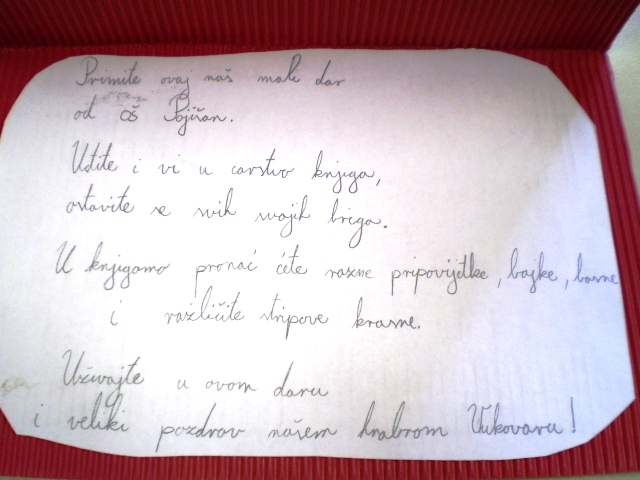 Primite ovaj naš mali dar
od oš Pojišan.
Uđite i vi u carstvo knjiga,
ostavite se svih svojih briga.
U knjigama pronać ćete razne pripovijetke, bajke, basne
i različite stripove krasne.
Uživajte u ovom daru
i veliki pozdrav našem hrabrom Vukovaru!